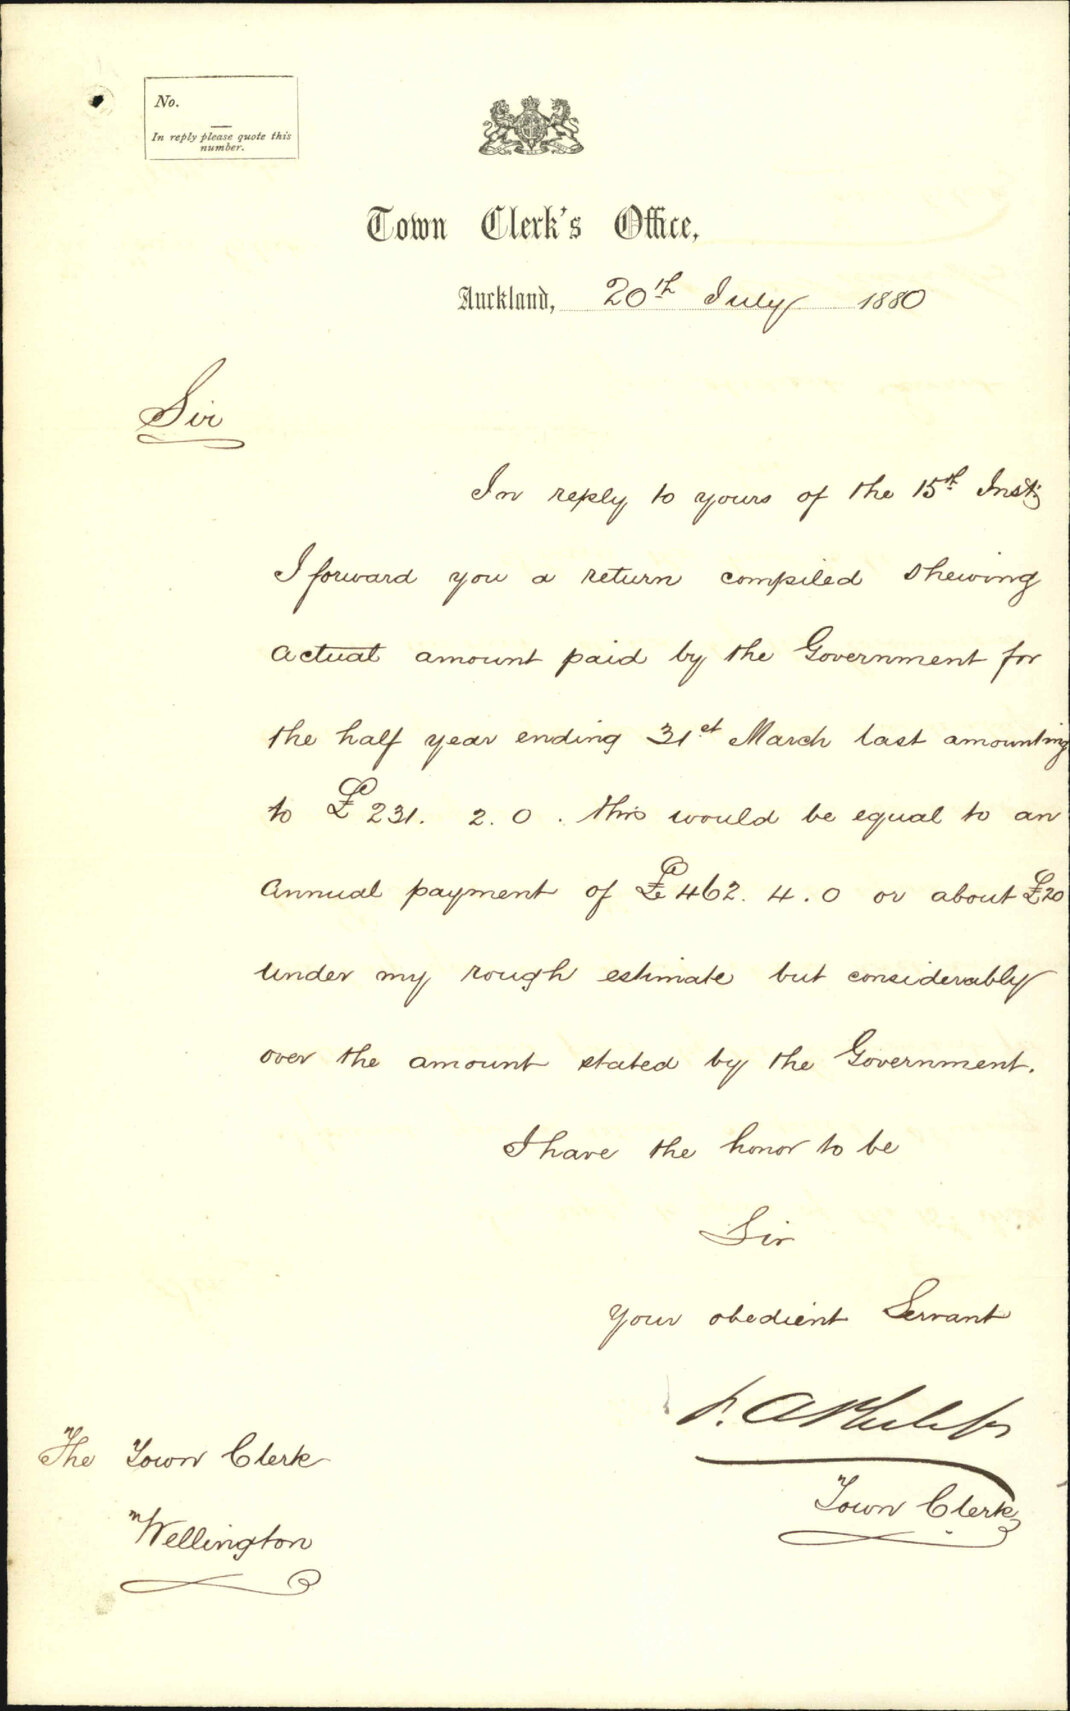 No.
In reply please quote this
number.
Town Clerk's Office,
Auckland, 20th July 1880
Sir
In reply to yours of the 15th Inst;
I forward you a return compiled shewing
actual amount paid by the Government for
the half year ending 31st March last amounting
to £231. 2. 0. this would be equal to an
annual payment of £462. 4. 0 or about £20
under my rough estimate but considerably
over the amount stated by the Government.
I have the honor to be
Sir
Your obedient Servant
Town Clerk
The Town Clerk
Wellington